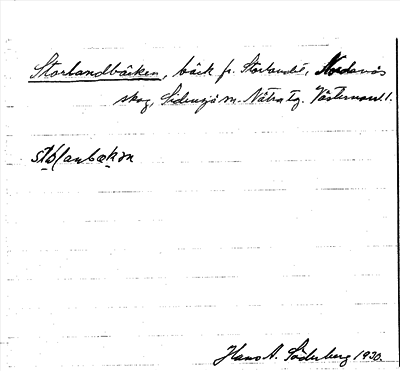 Storlandbäcken, bäck fr. Storlandet, Nordanås
skog, Sidensjö sn. Nätra tg. Västernorrl. l.
Hans A. Söderberg 1930.